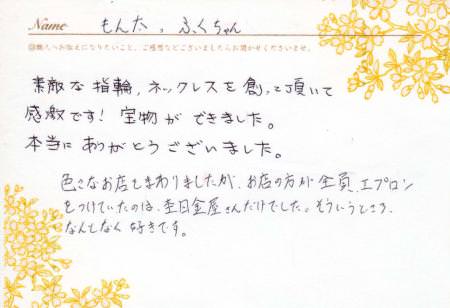 Name もんた, ふくちゃん
職人へお伝えになりたいこと、ご感想などございましたらお聞かせくださいませ。
素敵な指輪、ネックレスを創って頂いて
感激です! 宝物ができました。
本当にありがとうございました。
色々なお店をまわりましたが、お店の方が全員エプロン
をつけていたのは、杢目金屋さんだけでした。そういうところ、
なんとなく好きです。